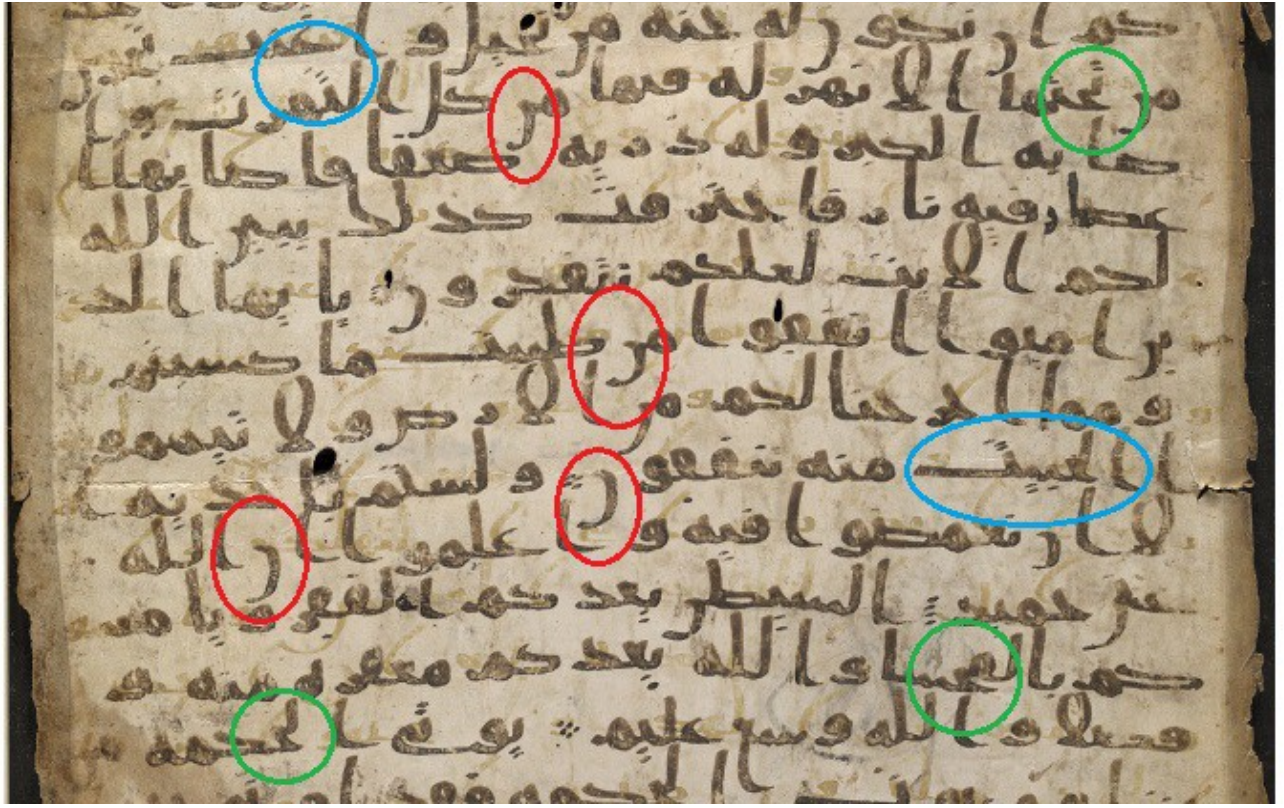 كم ان تكون له جنه من نخيل و اعنب تجري
من تحتها الانهر له فيها من كل الثمرت و ا
صابه الكبر وله ذريه ضعفا فاصابها ا
عصار فيه نار فاحترقت كذلك يبين الله
لكم الايت لعلكم تتفكرون يايها الذ
ين امنوا انفقوا من طيبت ما كسبتم
ومما اخرجنا لكم من الارض ولا تيممو
ا الخبيث منه تنفقون ولستم باخذيه ا
لا ان تغمضوا فيه واعلموا ان الله
غني حميد الشيطن يعدكم الفقر ويامر
كم بالفحشا والله يعدكم مغفره منه و
فضلا والله وسع عليم يوتي الحكمه من